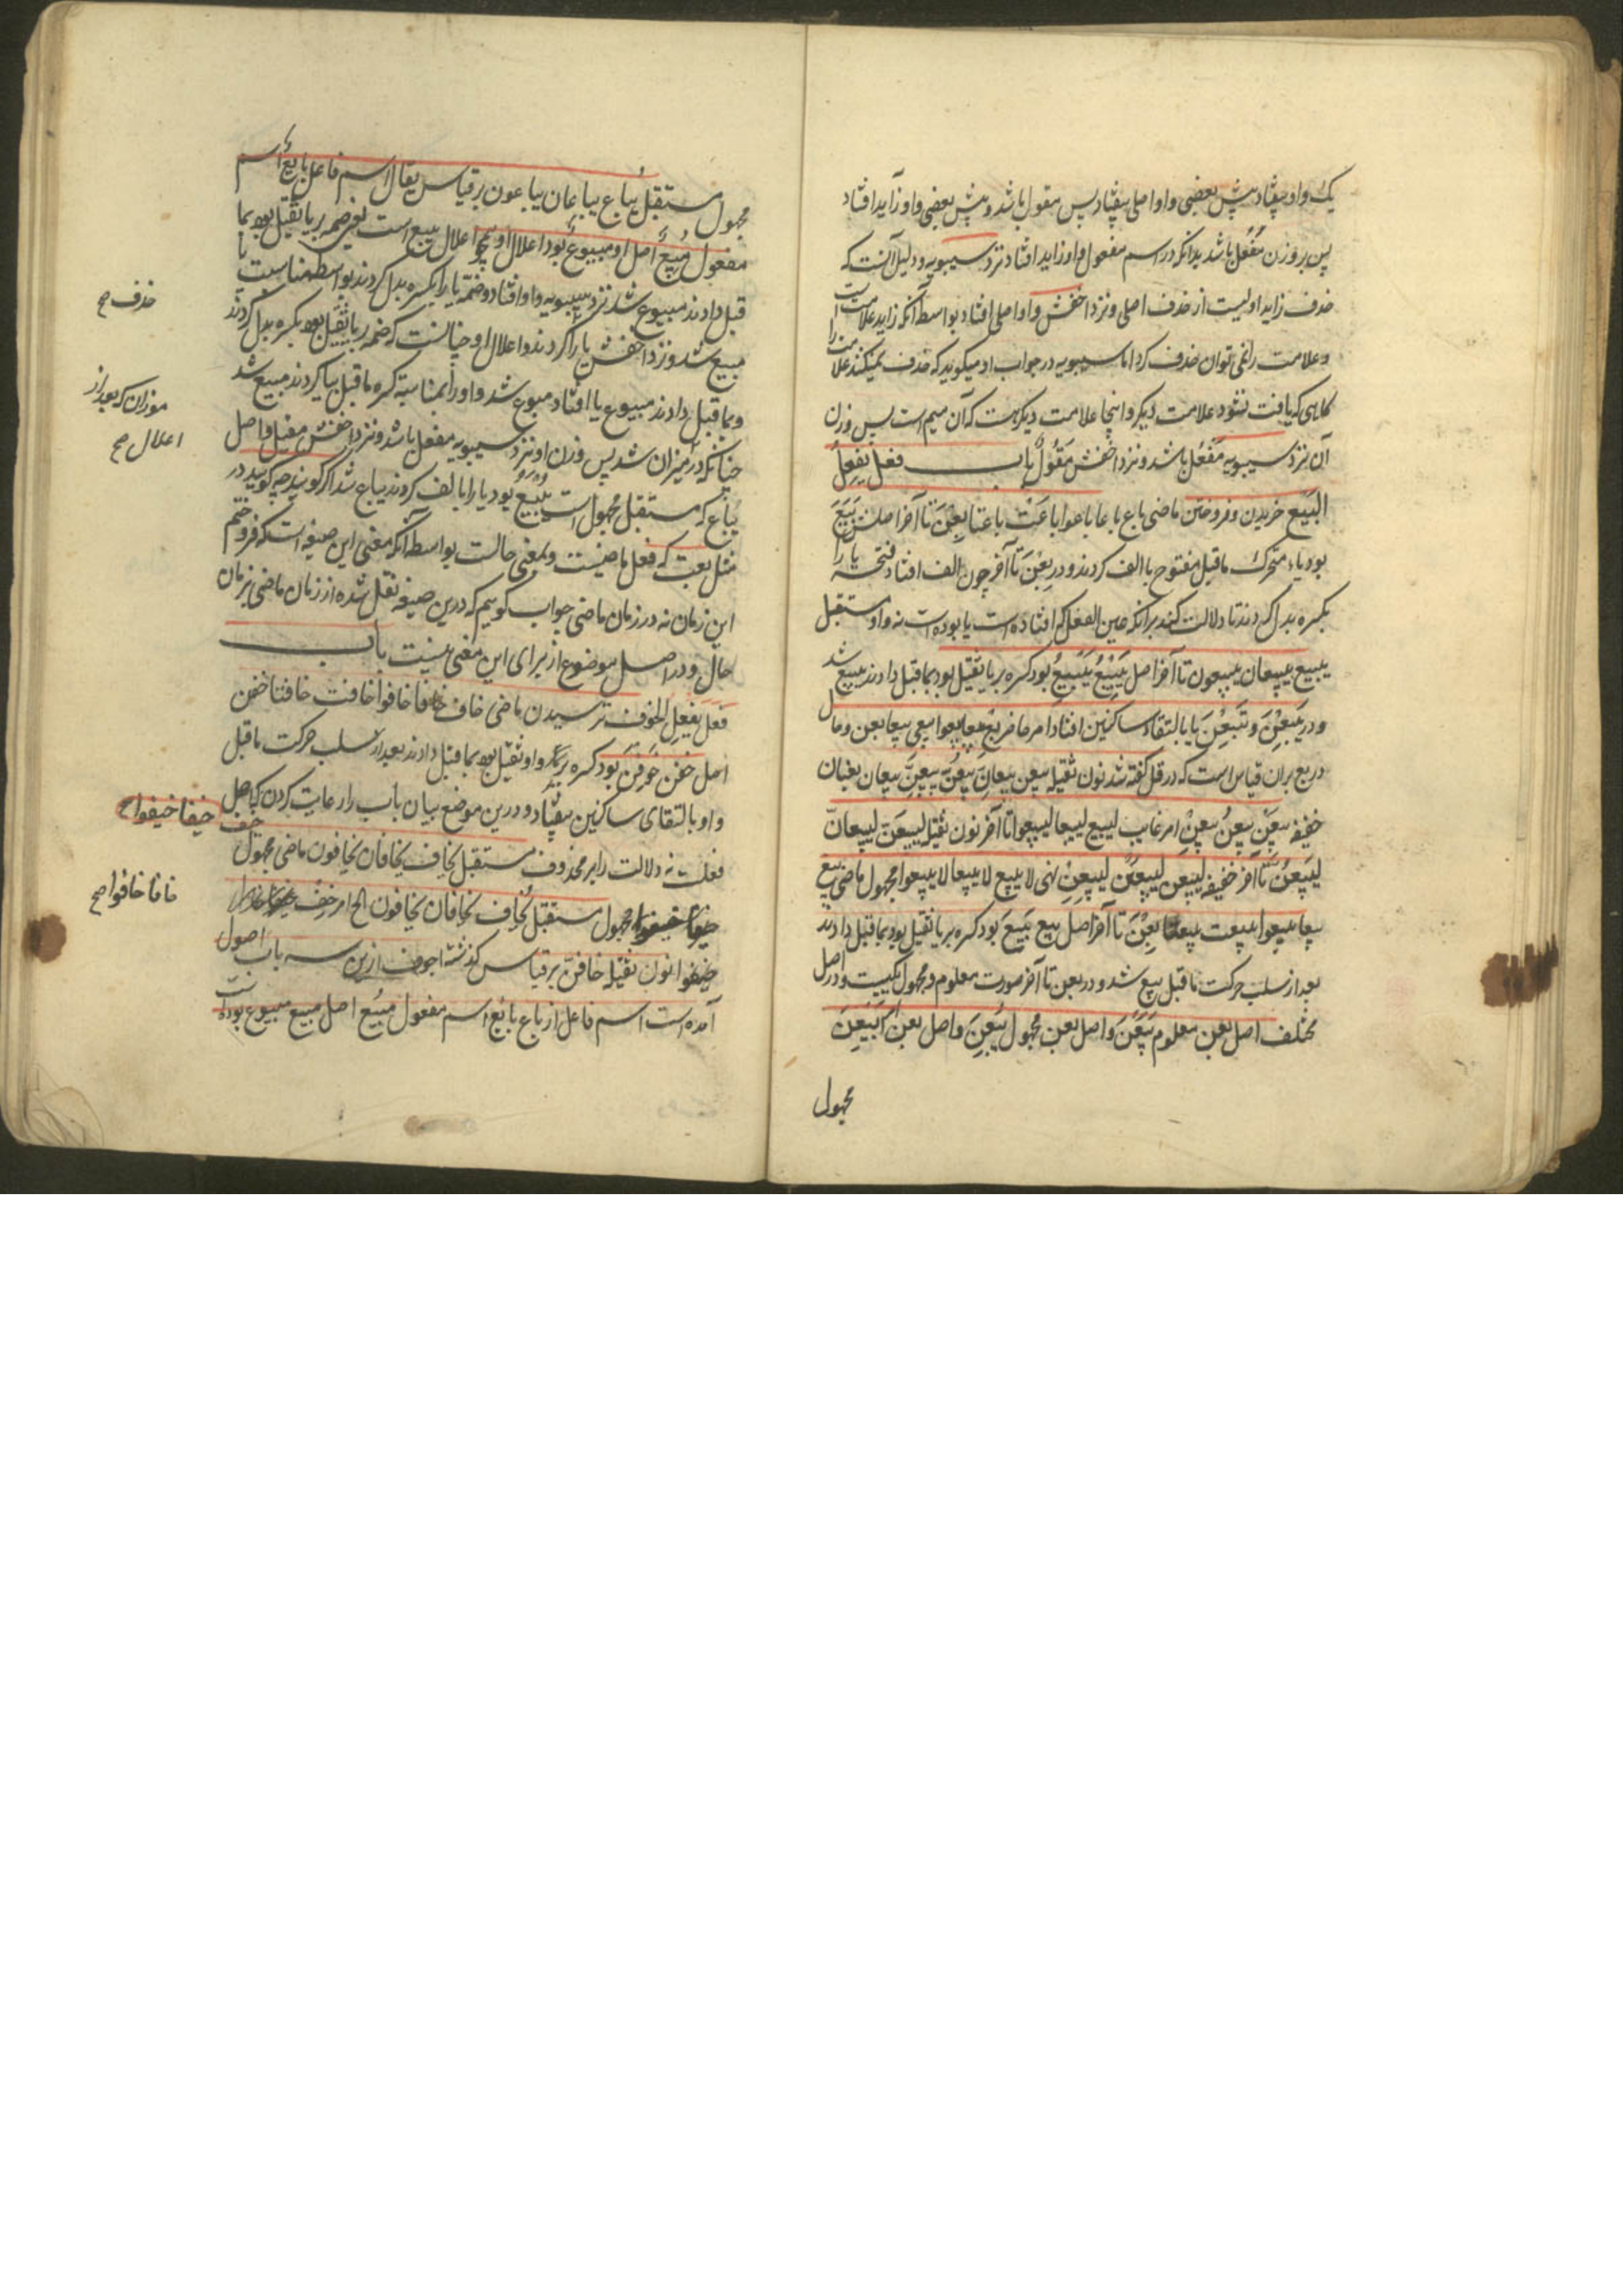 یک واو بیفتاد پیش بعضی واو اصلی بیفتاد پس مقول باشد و پیش بعضی واو زاید افتاد
پس بر وزن مَفُعْل باشد بدانکه در اسم مفعول واو زاید افتاد نزد سیبویه و دلیل آنست که
حذف زاید اولیست از حذف اصلی و نزد اخفش واو اصلی افتاد بواسطه آنکه زاید علامت است
و علامت را نمی توان حذف کرد اما سیبویه در جواب او میگوید که حذف نمیکند علامت را
گاهی که یافت نشود علامت دیگر و اینجا علامت دیگر هست که آن میم است پس وزن
آن نزد سیبویه مَفُعْل باشد و نزد اخفش مَفُوْل باب فعل یفعِل
البَیع خریدن و فروختن ماضی باع باعا باعوا باعَتْ باعتا بِعْنَ تا آخر اصلش بَیَعَ
بود یاء متحرک ماقبل مفتوح با الف کردند و در بِعْنَ تا آخر چون الف افتاد فتحه با را
بکسره بدل کردند تا دلالت کند برانکه عین الفعل که افتاده است یا بوده است نه واو مستقبل
یبیع یبیعان یبیعون تا آخر اصل یَبِیْعُ یَبْیِعُ بود کسره بر یا ثقیل بود بماقبل دادند یبیع شد
و در یَبِعْنَ و تَبِعْنَ یا بالتقاء ساکنین افتاد امر حاضر بع بیعا بیعوا بیعی بیعا بعن و حال
در بع بران قیاس است که در قل گفته شد نون ثقیله بیعن بیعانِّ بیعُنَّ بیعِنَّ بیعان بعنان
خفیفه بیعَنْ بیعُنْ بیعِنْ امر غایب لیبیع لیبیعا لیبیعوا تا آخر نون ثقیله لیبیعَنَّ لیبیعانّ
لیبیعُنَّ تا آخر خفیفه لیبیعن لیبیعُن لیبیعِنْ نهی لا یبیع لا یبیعا لا یبیعوا مجهول ماضی بیع
بیعا بیعوا بیعت بیعتا بِعْنَ تا آخر اصل بیع بُیِعَ بود کسره بر یا ثقیل بود بماقبل دادند
بعد از سلب حرکت ماقبل بیع شد و در بعن تا آخر صورت معلوم و مجهول یکیست و در اصل
مختلف اصل بعن معلوم بَیَعْنَ و اصل بعن مجهول بُیِعْنَ و اصل بعن امر اِبْیِعْنَ
مجهول
مجهول مستقبل یُباع یباعان یباعون بر قیاس یقال اسم فاعل بایعٌ اسم
مفعول مَبِیعٌ اصل او مبیوعٌ بود اعلال او همچو اعلال یبیع است یعنی ضمه بر یا ثقیل بود بما
قبل دادند مبیوع شد نزد سیبویه واو افتاد و ضمه با را بکسره بدل کردند بواسطه مناسبت یا
مبیع شد و نزد اخفش یا را کردند و اعلال او چنانست که ضمه بر یا ثقیل بود بکسره بدل کردند
و بماقبل دادند مبیوع یا افتاد مبوع شد واو را بمناسبة کسره ماقبل بیا کردند مبیع شد
چنانکه در میزان شد پس وزن او نزد سیبویه مفعل باشد و نزد اخفش مفیل و اصل
یُباع که مستقبل مجهول است یُبْیَعُ بود یا را با الف کردند یباع شد اگر گویند چه گویید در
مثل بعت که فعل ماضیست و بمعنی حالست بواسطه آنکه معنی این صیغه است که فروختم
این زمان نه در زمان ماضی جواب گوییم که درین صیغه نقل شده از زمان ماضی بزمان
حال و در اصل موضوع از برای این معنی نیست باب
فَعِلَ یفعل الخوف ترسیدن ماضی خاف خافا خافوا خافت خافتا خفن
اصل خفن خَوِفْنَ بود کسره بر واو ثقیل بود بماقبل دادند بعد از سلب حرکت ماقبل
واو بالتقای ساکنین بیفتاد و درین موضع بیان باب را رعایت کردن که اصل
فعلست نه دلالت را بر محذوف مستقبل یخاف یخافان یخافون ماضی مجهول خیف
مجهول مستقبل یُخاف یخافان یخافون الخ امر خف
نون ثقیله خافنّ بر قیاس گذشته اجوف ازین سه باب اصول
آمده است اسم فاعل از باع بائع اسم مفعول مَبیع اصل مبیع مبیوع بوده است
حذف صح
موزان که بعد از
اعلال صح
خیفا خیفوا صح
خافا خافوا صح